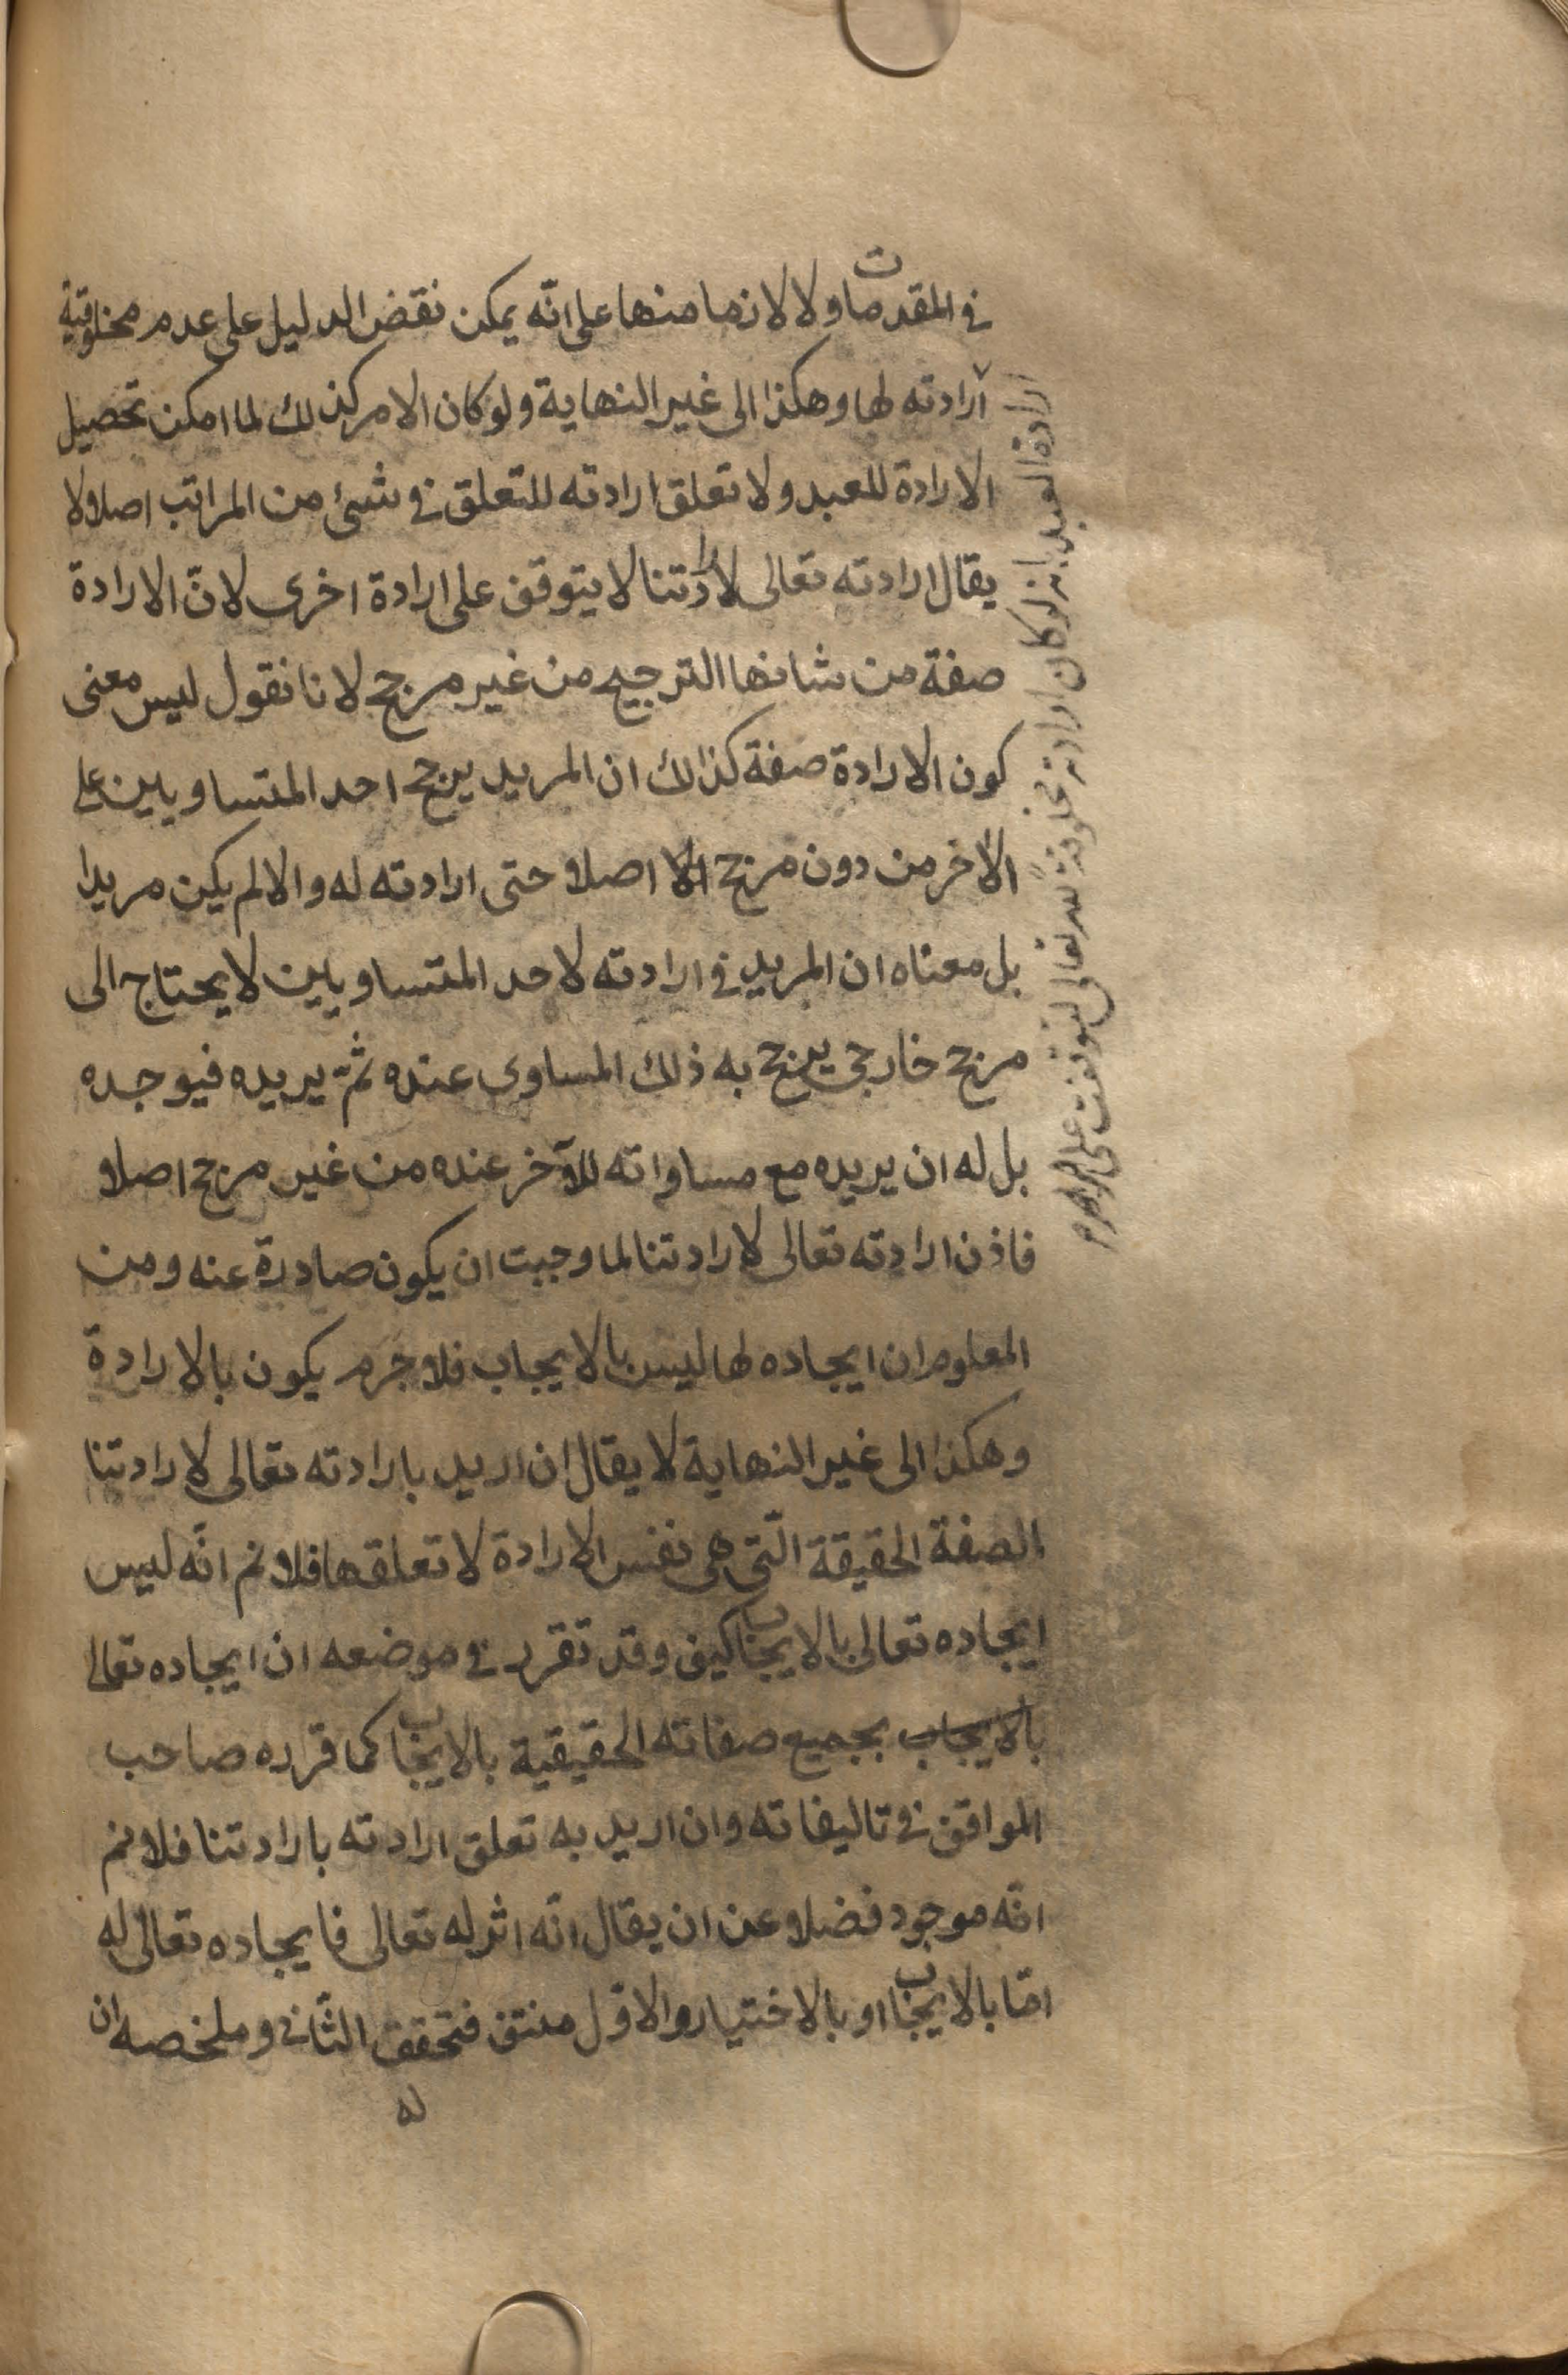 في المقدمات ولا لازما منها على انّه يمكن نقض الدليل على عدم مخلوقية
ارادته لها وهكذا الى غير النهاية ولو كان الامر كذلك لما امكن تحصيل
الارادة للعبد ولا تعلق ارادته للتعلق في شئ من المراتب اصلا ولا
يقال ارادته تعالى لارادتنا لا يتوقف على ارادة اخرى لانّ الارادة
صفة من شانها الترجيح من غير مرجح لانا نقول ليس معنى
كون الارادة صفة كذالك ان المريد يرجح احد المتساويين على
الآخر من دون مرجح الا اصلا حتى ارادته له والا لم يكن مريدا
بل معناه ان المريد في ارادته لاحد المتساويين لا يحتاج الى
مرجح خارجي يرجح به ذلك المساوى عنده ثمّ يريده فيوجده
بل له ان يريده مع مساواته للآخر عنده من غير مرجح اصلا
فاذن ارادته تعالى لارادتنا لما وجبت ان يكون صادرة عنه ومن
المعلوم ان ايجاده لها ليس بالايجاب فلا جرم يكون بالارادة
وهكذا الى غير النهاية لا يقال ان اريد بارادته تعالى لارادتنا
الصفة الحقيقة الّتي هى نفس الارادة لا تعلقها فلانم انّه ليس
ايجاده تعالى بالايجاب كيف وقد تقرر في موضعه ان ايجاده تعالى
بالايجاب بجميع صفاته الحقيقية بالايجاب كما قرره صاحب
المواقف في تاليفاته وان اريد به تعلق ارادته بارادتنا فلانم
انّه موجود فضلا عن ان يقال انّه اثر له تعالى فايجاده تعالى له
امّا بالايجاب او بالاختيار والاوّل منتف فتحقق الثّانى وملخصه ان
له
ارادة العبد بانه لو كان ارادته مخلوقة لله تعالى لتوقفت على